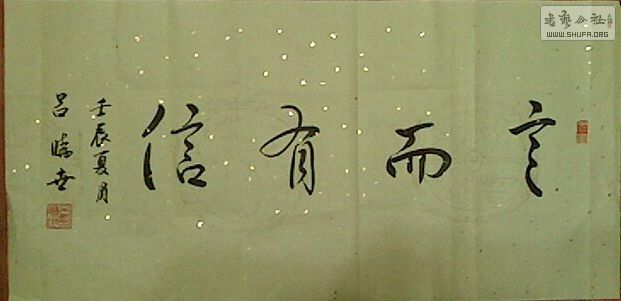 言而有信
壬辰夏月
書藝公社
WWW.SHUFA.ORG